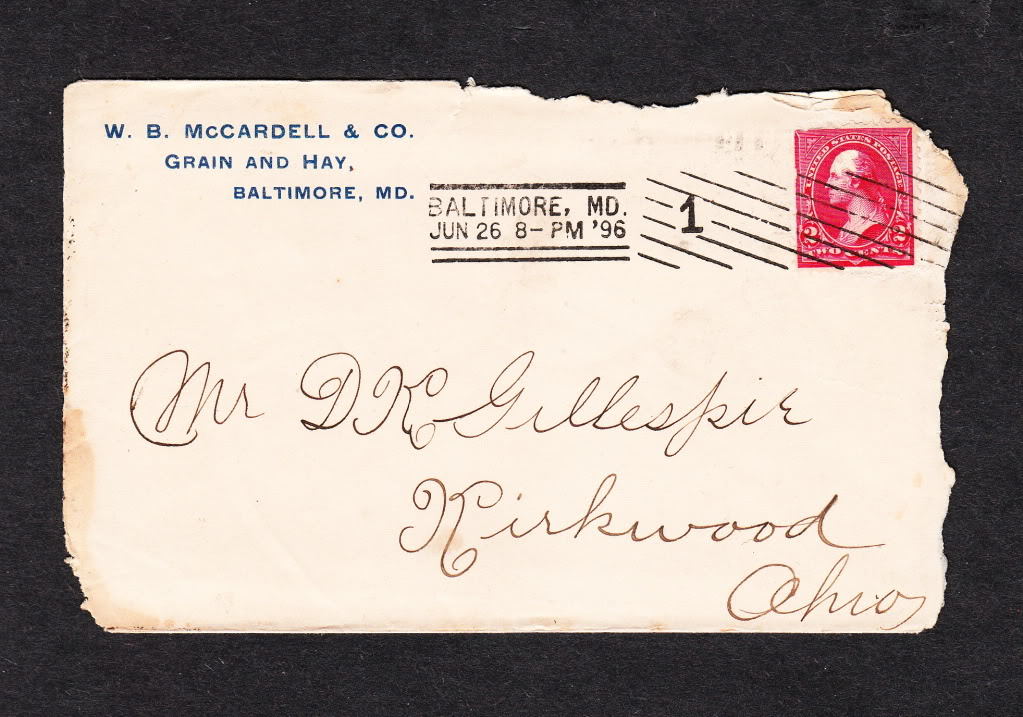 W. B. McCARDELL & CO.
GRAIN AND HAY,
BALTIMORE, MD.
BALTIMORE, MD.
JUN 26 8-PM '96
1
UNITED STATES POSTAGE
2 2
TWO CENTS
Mr D K Gillespie
Kirkwood
Ohio